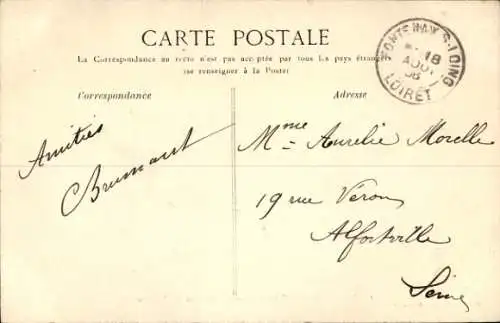 CARTE POSTALE
La Correspondance au recto n'est pas acceptée par tous les pays étrangers
(se renseigner à la Poste)
Correspondance
Adresse
FONTENAY S. LOING
18
AOUT
08
LOIRET
Amitiés
Mme Aurelie Morelle
19 rue Véron
Alfortville
Seine